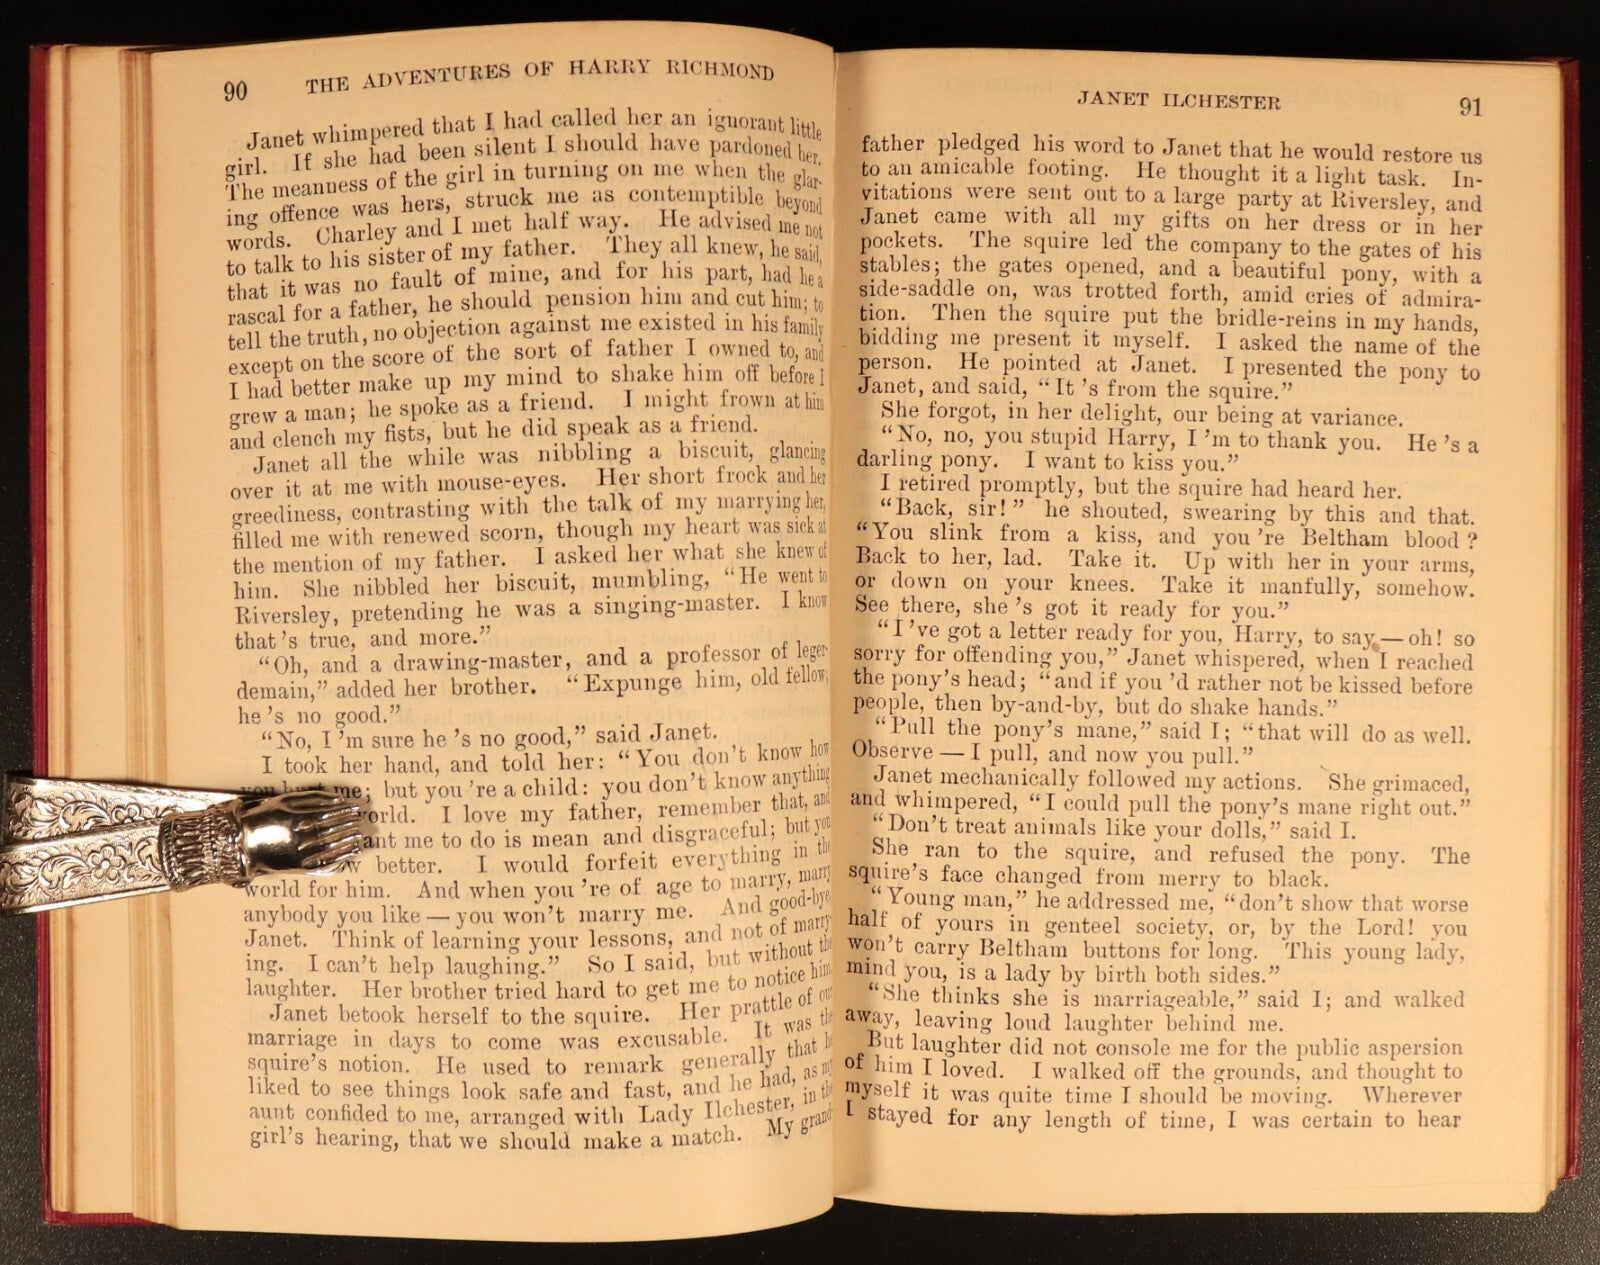 90 THE ADVENTURES OF HARRY RICHMOND
Janet whimpered that I had called her an ignorant little
girl. If she had been silent I should have pardoned her.
The meanness of the girl in turning on me when the glar-
ing offence was hers, struck me as contemptible beyond
words. Charley and I met half way. He advised me not
to talk to his sister of my father. They all knew, he said,
that it was no fault of mine, and for his part, had he a
rascal for a father, he should pension him and cut him; to
tell the truth, no objection against me existed in his family
except on the score of the sort of father I owned to, and
I had better make up my mind to shake him off before I
grew a man; he spoke as a friend. I might frown at him
and clench my fists, but he did speak as a friend.
Janet all the while was nibbling a biscuit, glancing
over it at me with mouse-eyes. Her short frock and her
greediness, contrasting with the talk of my marrying her,
filled me with renewed scorn, though my heart was sick at
the mention of my father. I asked her what she knew of
him. She nibbled her biscuit, mumbling, “He went to
Riversley, pretending he was a singing-master. I know
that 's true, and more.”
“Oh, and a drawing-master, and a professor of leger-
demain,” added her brother. “Expunge him, old fellow;
he 's no good.”
“No, I 'm sure he 's no good,” said Janet.
I took her hand, and told her: “You don't know how
you hurt me; but you 're a child: you don't know anything
world. I love my father, remember that, and
me to do is mean and disgraceful; but you
better. I would forfeit everything in the
world for him. And when you 're of age to marry, marry
anybody you like — you won't marry me. And good-bye,
Janet. Think of learning your lessons, and not of marry-
ing. I can't help laughing.” So I said, but without the
laughter. Her brother tried hard to get me to notice him.
Janet betook herself to the squire. Her prattle of our
marriage in days to come was excusable. It was the
squire's notion. He used to remark generally that he
liked to see things look safe and fast, and he had, as my
aunt confided to me, arranged with Lady Ilchester, in the
girl's hearing, that we should make a match. My grand-
JANET ILCHESTER 91
father pledged his word to Janet that he would restore us
to an amicable footing. He thought it a light task. In-
vitations were sent out to a large party at Riversley, and
Janet came with all my gifts on her dress or in her
pockets. The squire led the company to the gates of his
stables; the gates opened, and a beautiful pony, with a
side-saddle on, was trotted forth, amid cries of admira-
tion. Then the squire put the bridle-reins in my hands,
bidding me present it myself. I asked the name of the
person. He pointed at Janet. I presented the pony to
Janet, and said, “It 's from the squire.”
She forgot, in her delight, our being at variance.
“No, no, you stupid Harry, I 'm to thank you. He 's a
darling pony. I want to kiss you.”
I retired promptly, but the squire had heard her.
“Back, sir!” he shouted, swearing by this and that.
“You slink from a kiss, and you 're Beltham blood?
Back to her, lad. Take it. Up with her in your arms,
or down on your knees. Take it manfully, somehow.
See there, she 's got it ready for you.”
“I 've got a letter ready for you, Harry, to say — oh! so
sorry for offending you,” Janet whispered, when I reached
the pony's head; “and if you 'd rather not be kissed before
people, then by-and-by, but do shake hands.”
“Pull the pony's mane,” said I; “that will do as well.
Observe — I pull, and now you pull.”
Janet mechanically followed my actions. She grimaced,
and whimpered, “I could pull the pony's mane right out.”
“Don't treat animals like your dolls,” said I.
She ran to the squire, and refused the pony. The
squire's face changed from merry to black.
“Young man,” he addressed me, “don't show that worse
half of yours in genteel society, or, by the Lord! you
won't carry Beltham buttons for long. This young lady,
mind you, is a lady by birth both sides.”
“She thinks she is marriageable,” said I; and walked
away, leaving loud laughter behind me.
But laughter did not console me for the public aspersion
of him I loved. I walked off the grounds, and thought to
myself it was quite time I should be moving. Wherever
I stayed for any length of time, I was certain to hear